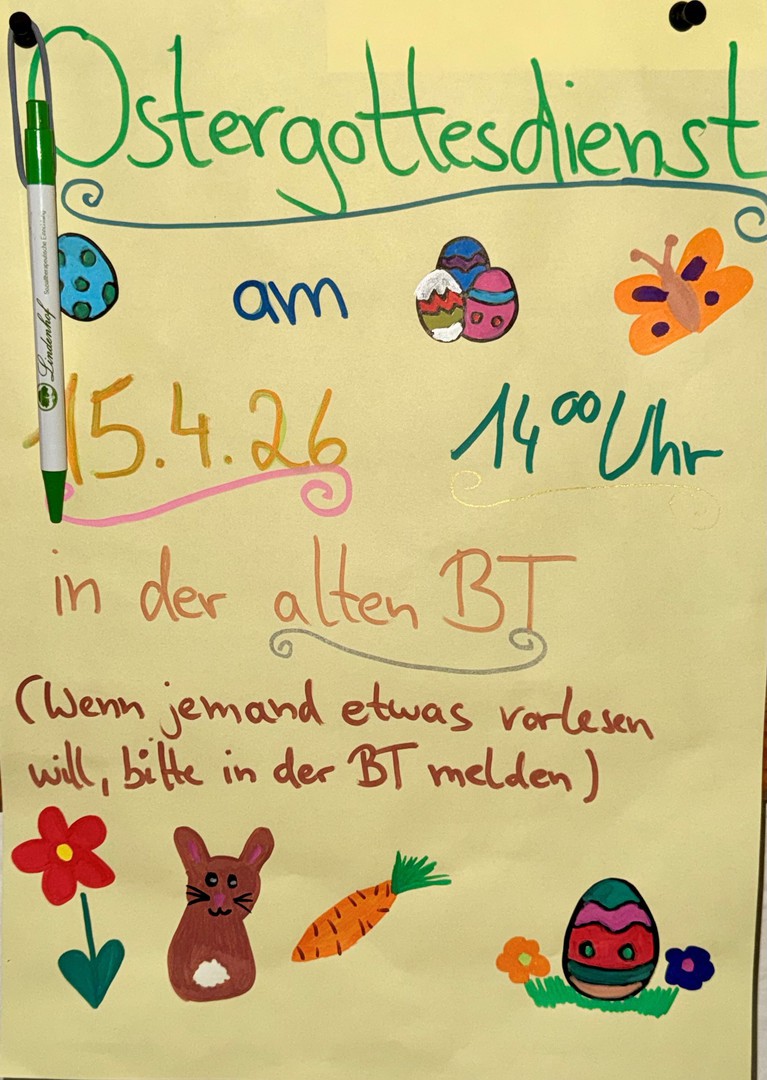 Ostergottesdienst
am
15.4.26 14⁰⁰ Uhr
in der alten BT
(Wenn jemand etwas vorlesen
will, bitte in der BT melden)
Lindenhof